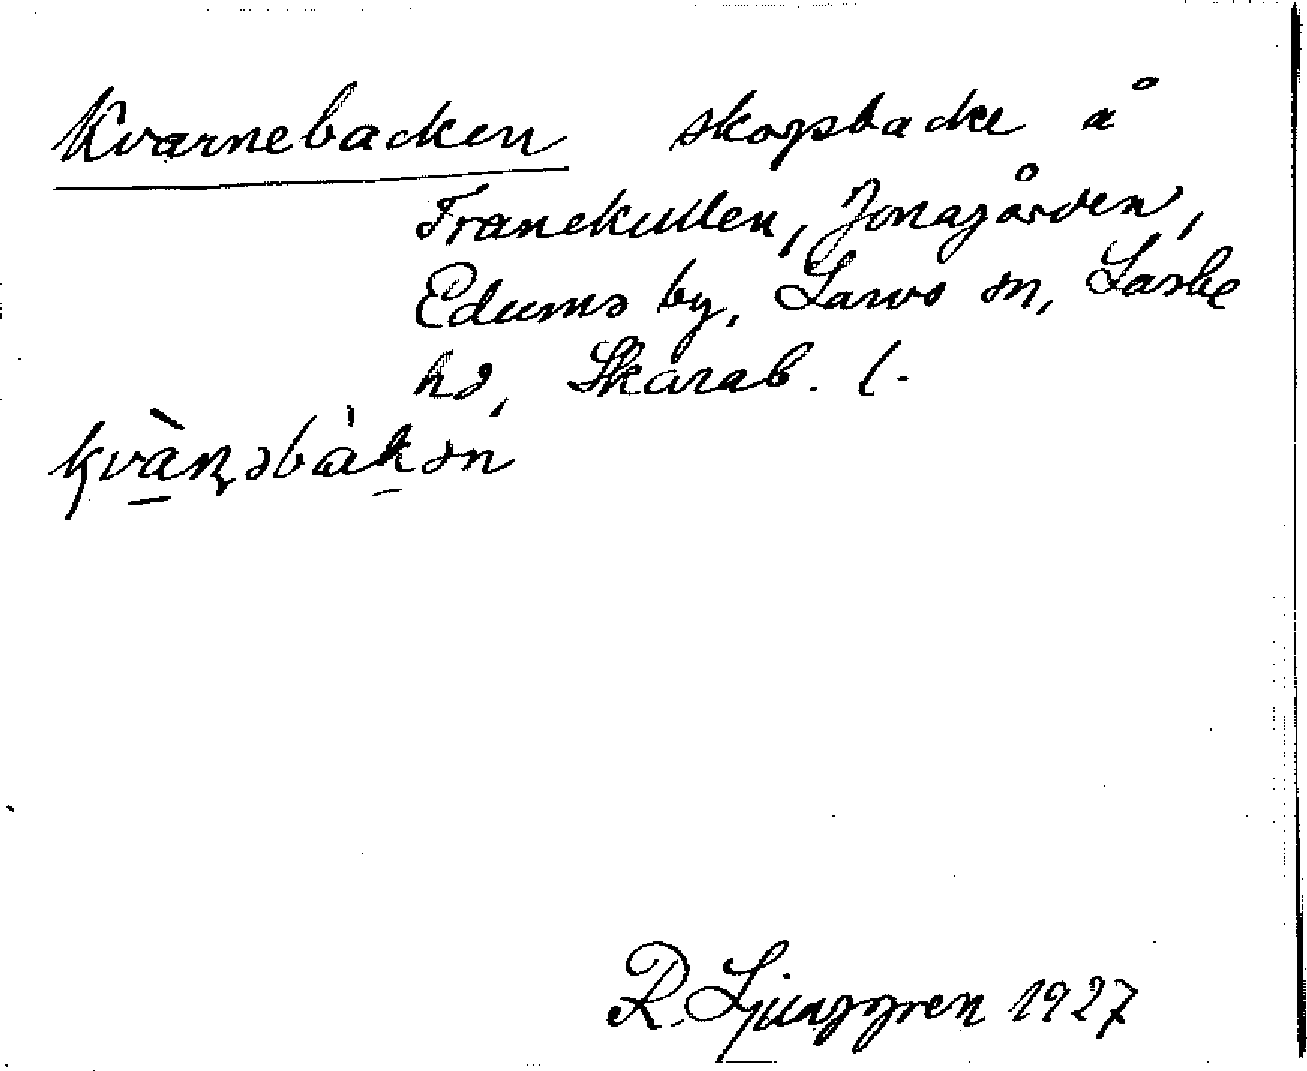 Kvarnebacken skogsbacke å
Tranekullen, Jonagården,
Edums by, Larvs sn, Laske
hd, Skarab. l.
kvàɳəbàkən
R. Ljunggren 1927